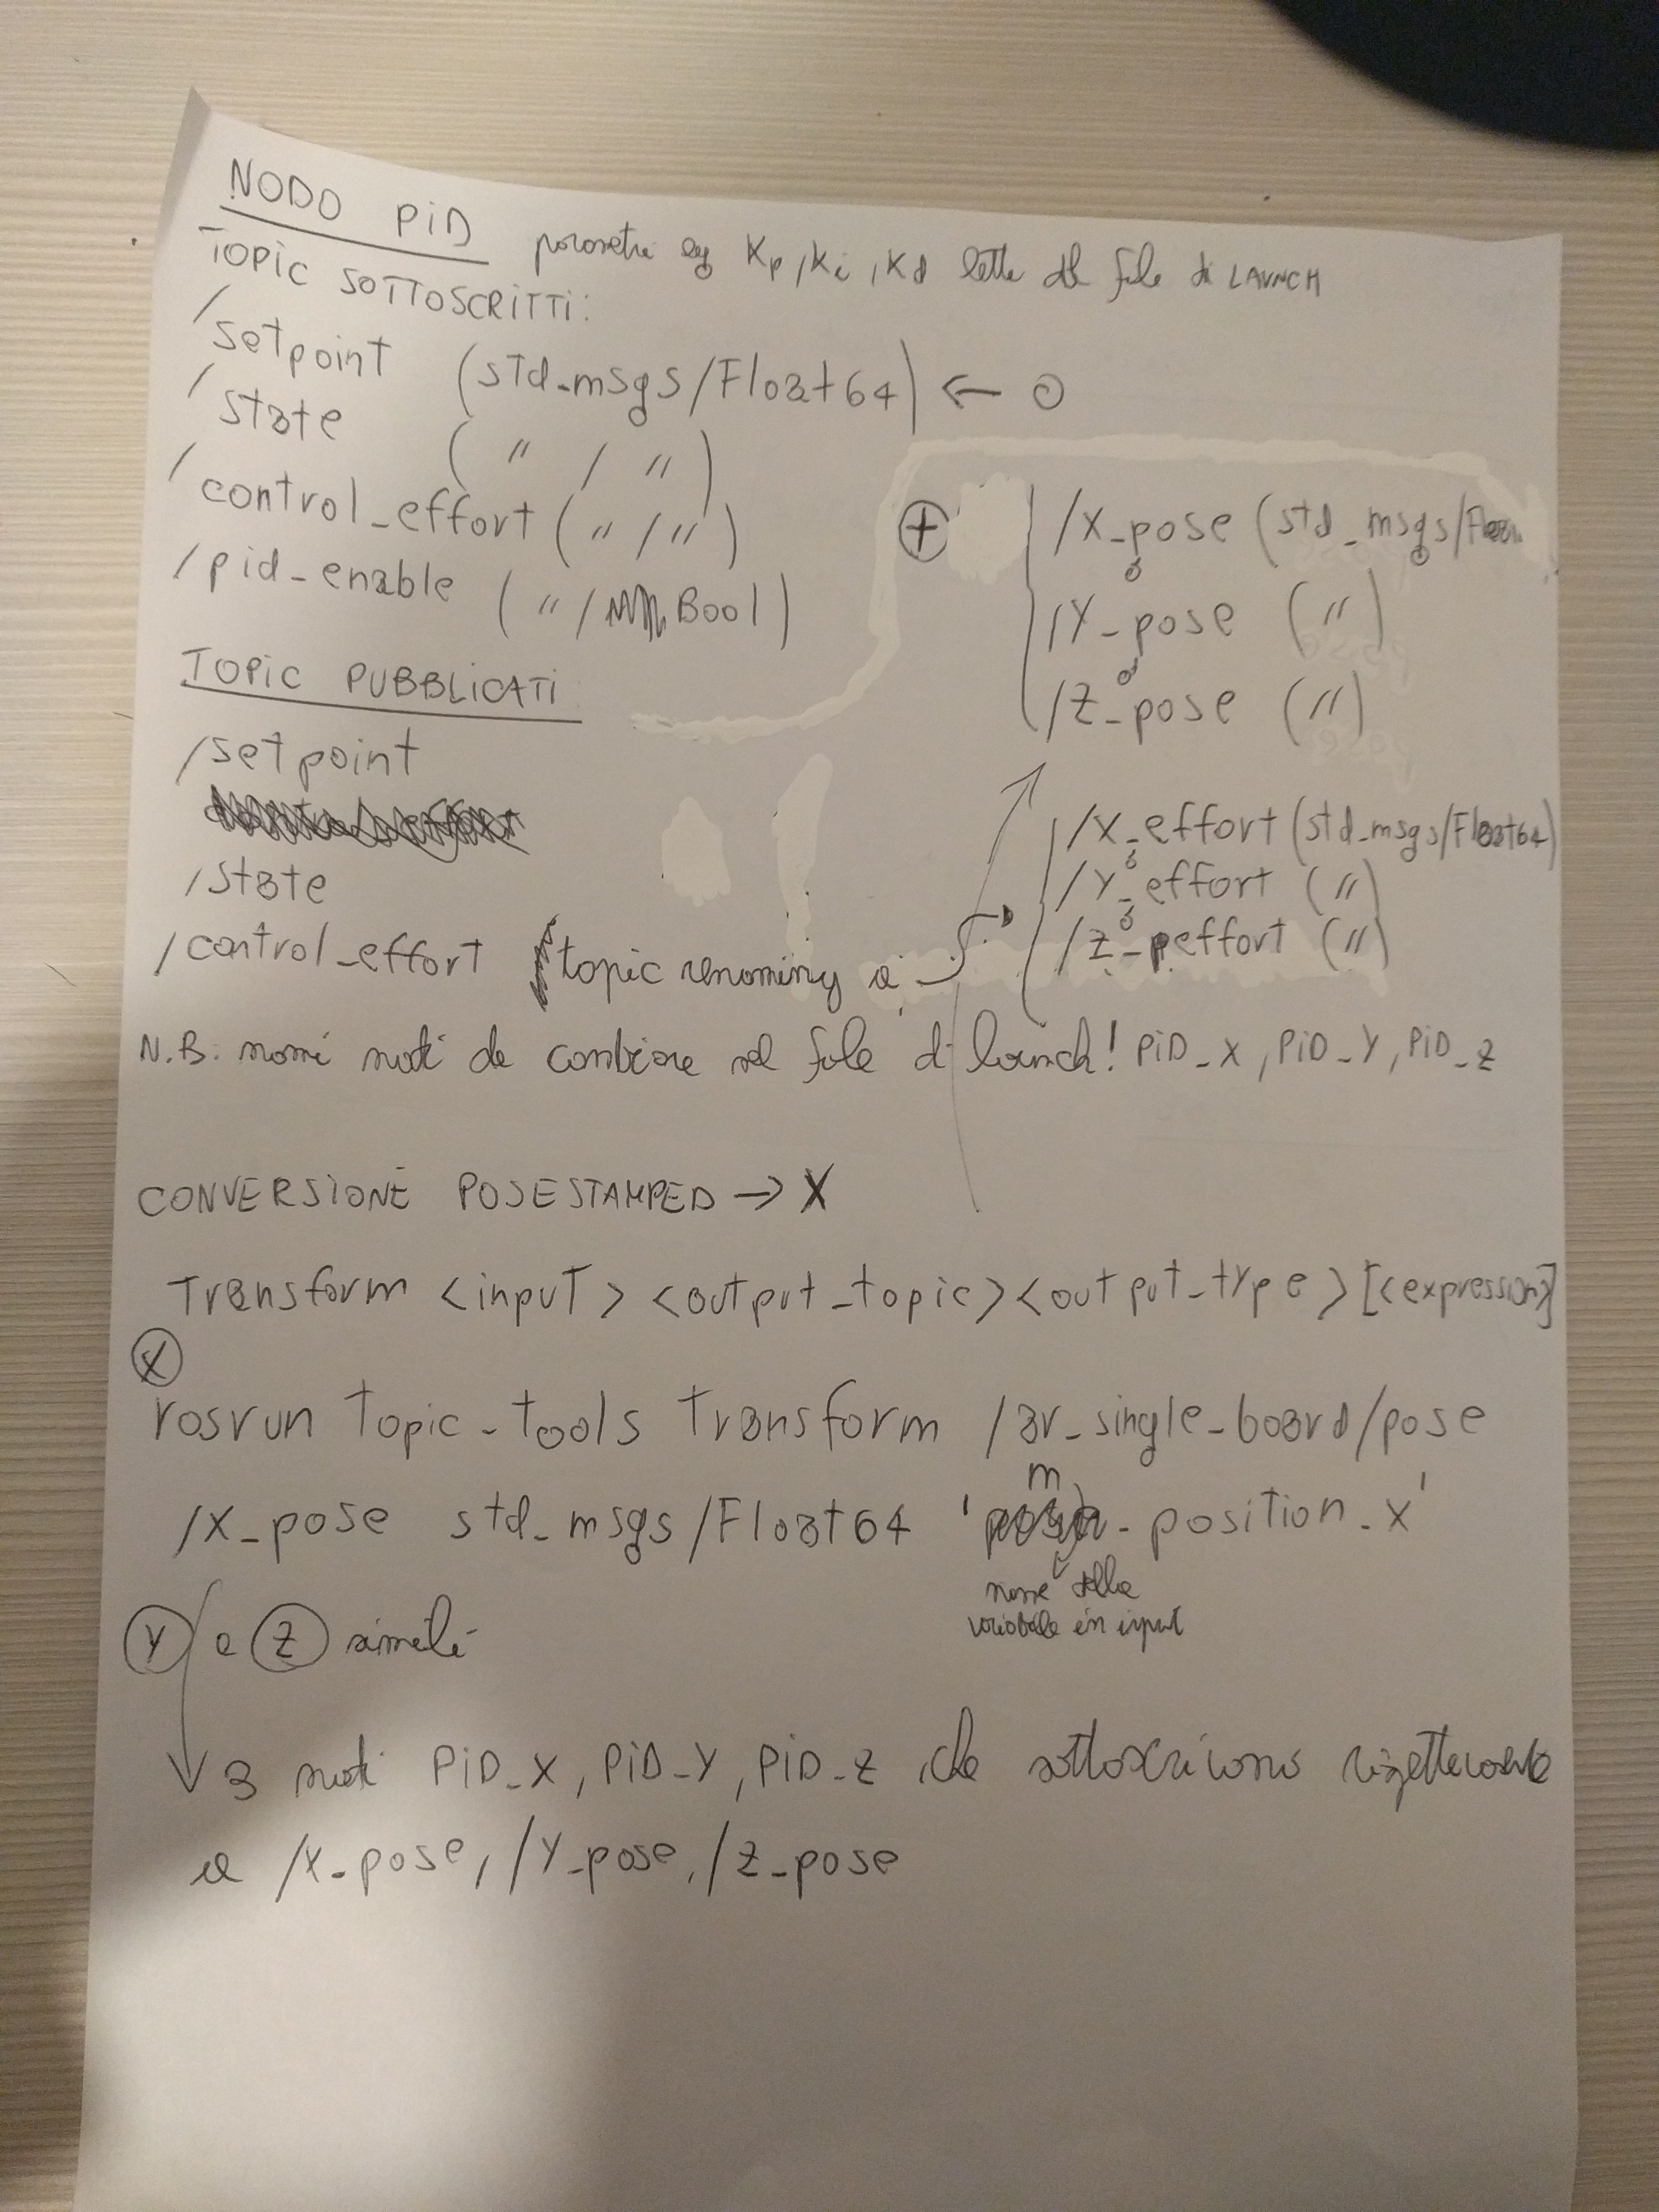 NODO PiD
parametri eg Kp, Ki, Kd letti dal file di LAUNCH
TOPIC SOTTOSCRITTI:
/setpoint (std_msgs/Float64) ← 0
/state ( " / " )
/control_effort ( " / " )
/pid_enable ( " / Bool )
⊕ /X_pose (std_msgs/
/Y_pose ( " )
/Z_pose ( " )
TOPIC PUBBLICATI
/setpoint
/state
/control_effort topic renaming a
/X_effort (std_msgs/Float64)
/Y_effort ( " )
/Z_effort ( " )
N.B. nomi nodi da cambiare nel file di launch! PiD_X, PiD_Y, PiD_Z
CONVERSIONE POSESTAMPED → X
Transform <input> <output_topic> <output_type> [<expression>]
X
rosrun topic_tools transform /ar_single_board/pose
/X_pose std_msgs/Float64 'm.position.x'
nome della
variabile in input
Y e Z simili
3 nodi PiD_X, PiD_Y, PiD_Z che sottoscrivono rispettivamente
a /X_pose, /Y_pose, /Z_pose